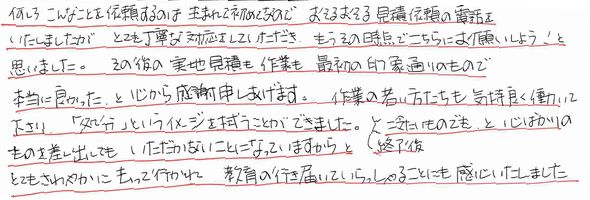 何しろ こんなことを依頼するのは 生まれて初めてなので おそるおそる見積依頼の電話を
いたしましたが とても丁寧な対応をしていただき もうその時点でこちらにお願いしよう！と
思いました。 その後の実地見積も作業も 最初の印象通りのもので
本当に良かった、と心から感謝申しあげます。 作業の若い方たちも気持良く働いて
下さり、「処分」というイメージを拭うことができました。
冷たいものでも、と心ばかりの
終了後
ものを差し出しても いただかないことになっていますからと
とてもさわやかに去って行かれ 教育の行き届いていらっしゃることにも感心いたしました